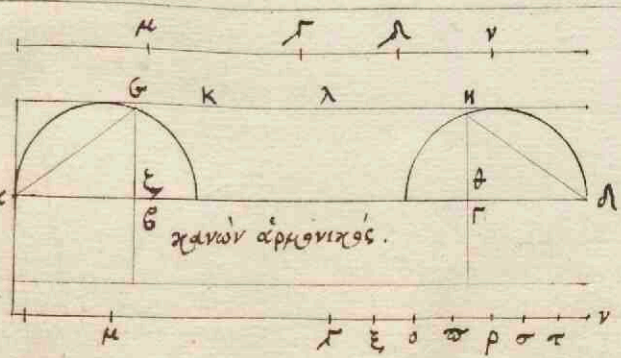 μ Γ Δ ν
ϐ κ λ η
ζ θ
ϐ Γ Δ
κανὼν ἁρμονικός.
μ Γ ξ ο π ρ σ τ ν